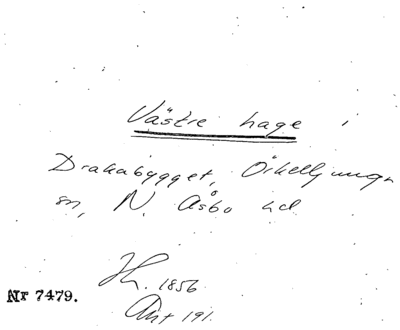 Västre hage i
Drakabygget, Örkelljunga
sn, N. Åsbo hd
1856
Nr 7479.
Akt 191.